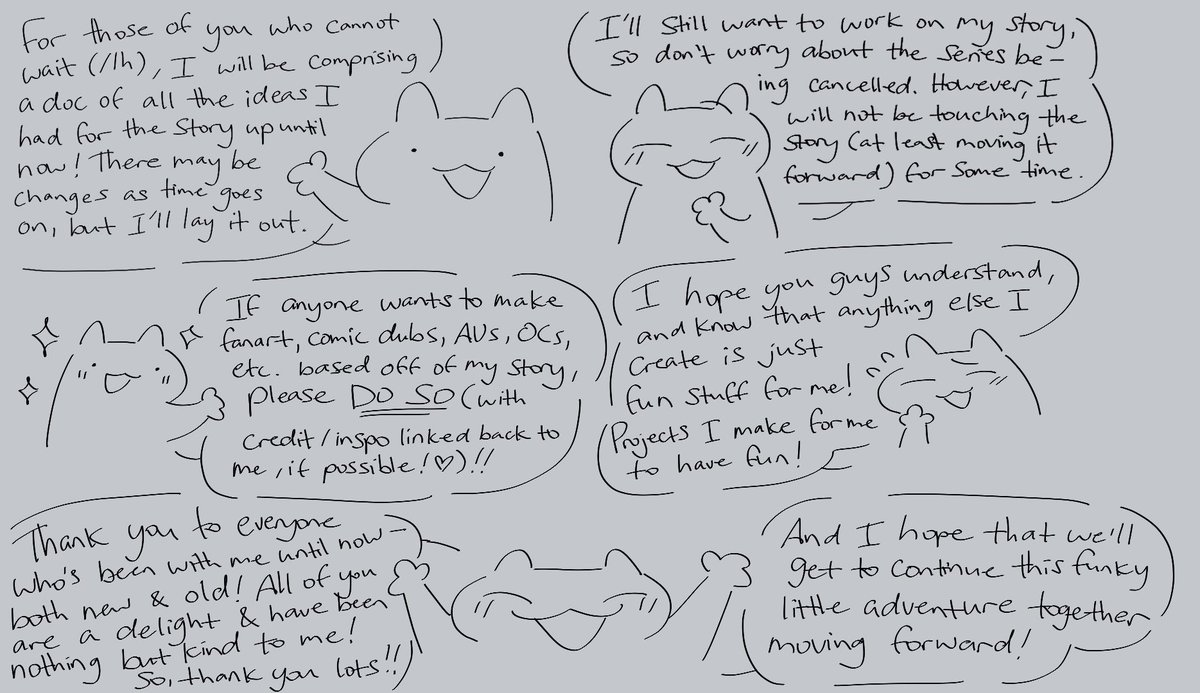 For those of you who cannot
wait (/lh), I will be comprising
a doc of all the ideas I
had for the story up until
now! There may be
changes as time goes
on, but I'll lay it out.
I'll still want to work on my story,
so don't worry about the series be-
ing cancelled. However, I
will not be touching the
story (at least moving it
forward) for some time.
If anyone wants to make
fanart, comic dubs, AUs, OCs,
etc. based off of my story,
please DO SO (with
credit/inspo linked back to
me, if possible!♡)!!
I hope you guys understand,
and know that anything else I
create is just
fun stuff for me!
Projects I make for me
to have fun!
Thank you to everyone
who's been with me until now-
both new & old! All of you
are a delight & have been
nothing but kind to me!
So, thank you lots!!
And I hope that we'll
get to continue this funky
little adventure together
moving forward!